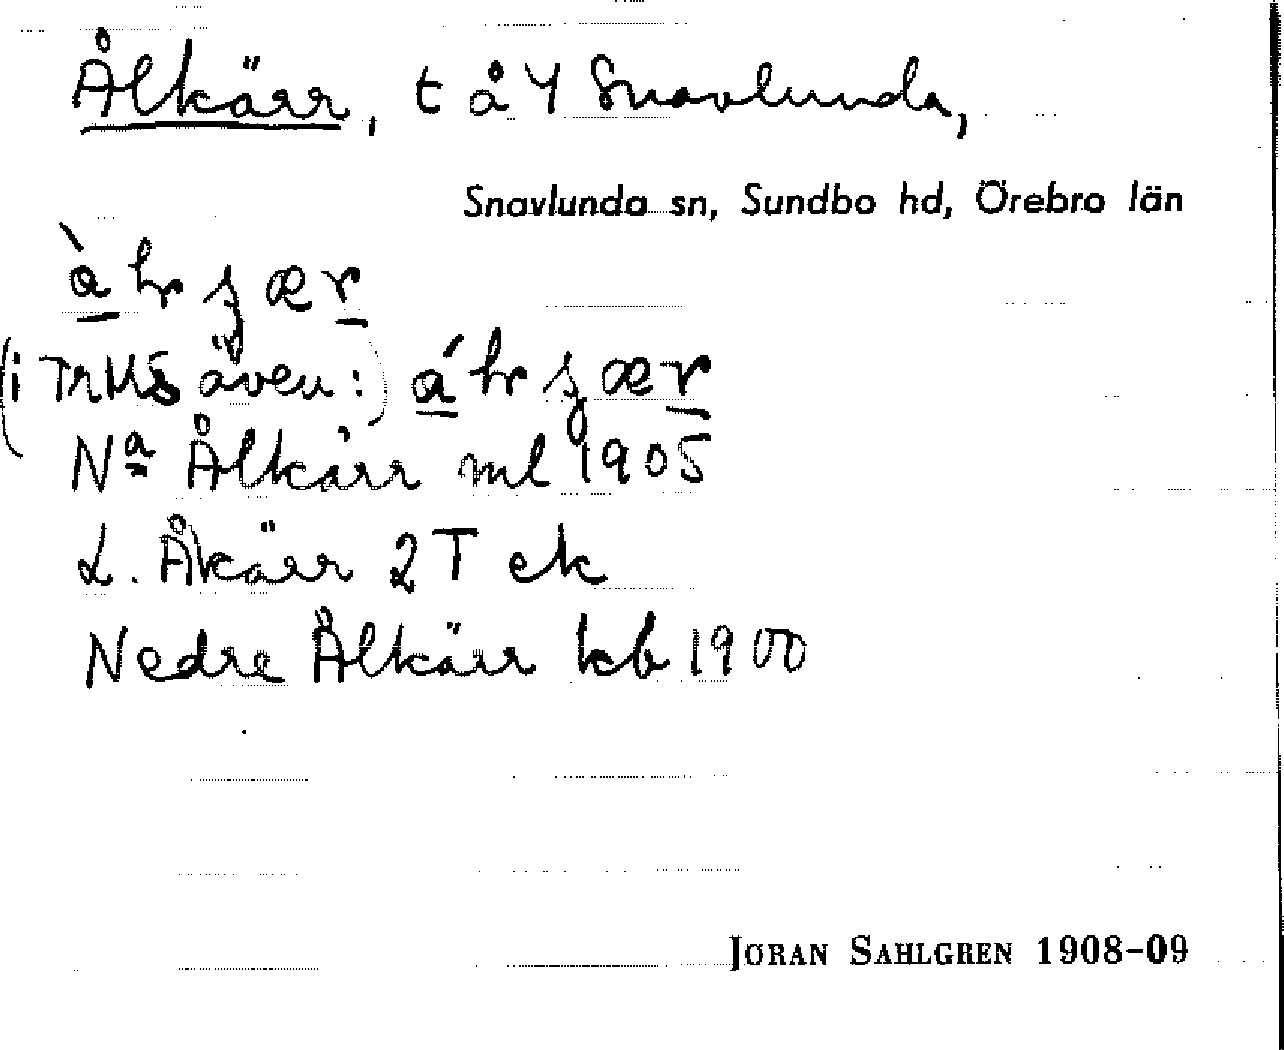 Ålkärr, t å 4 Snavlunda,
Snavlunda sn, Sundbo hd, Örebro län
(i TrMS även:)
Nª Ålkärr ml 1905
L. Åkärr 2 T ek
Nedre Ålkärr kb 1900
JORAN SAHLGREN 1908-09